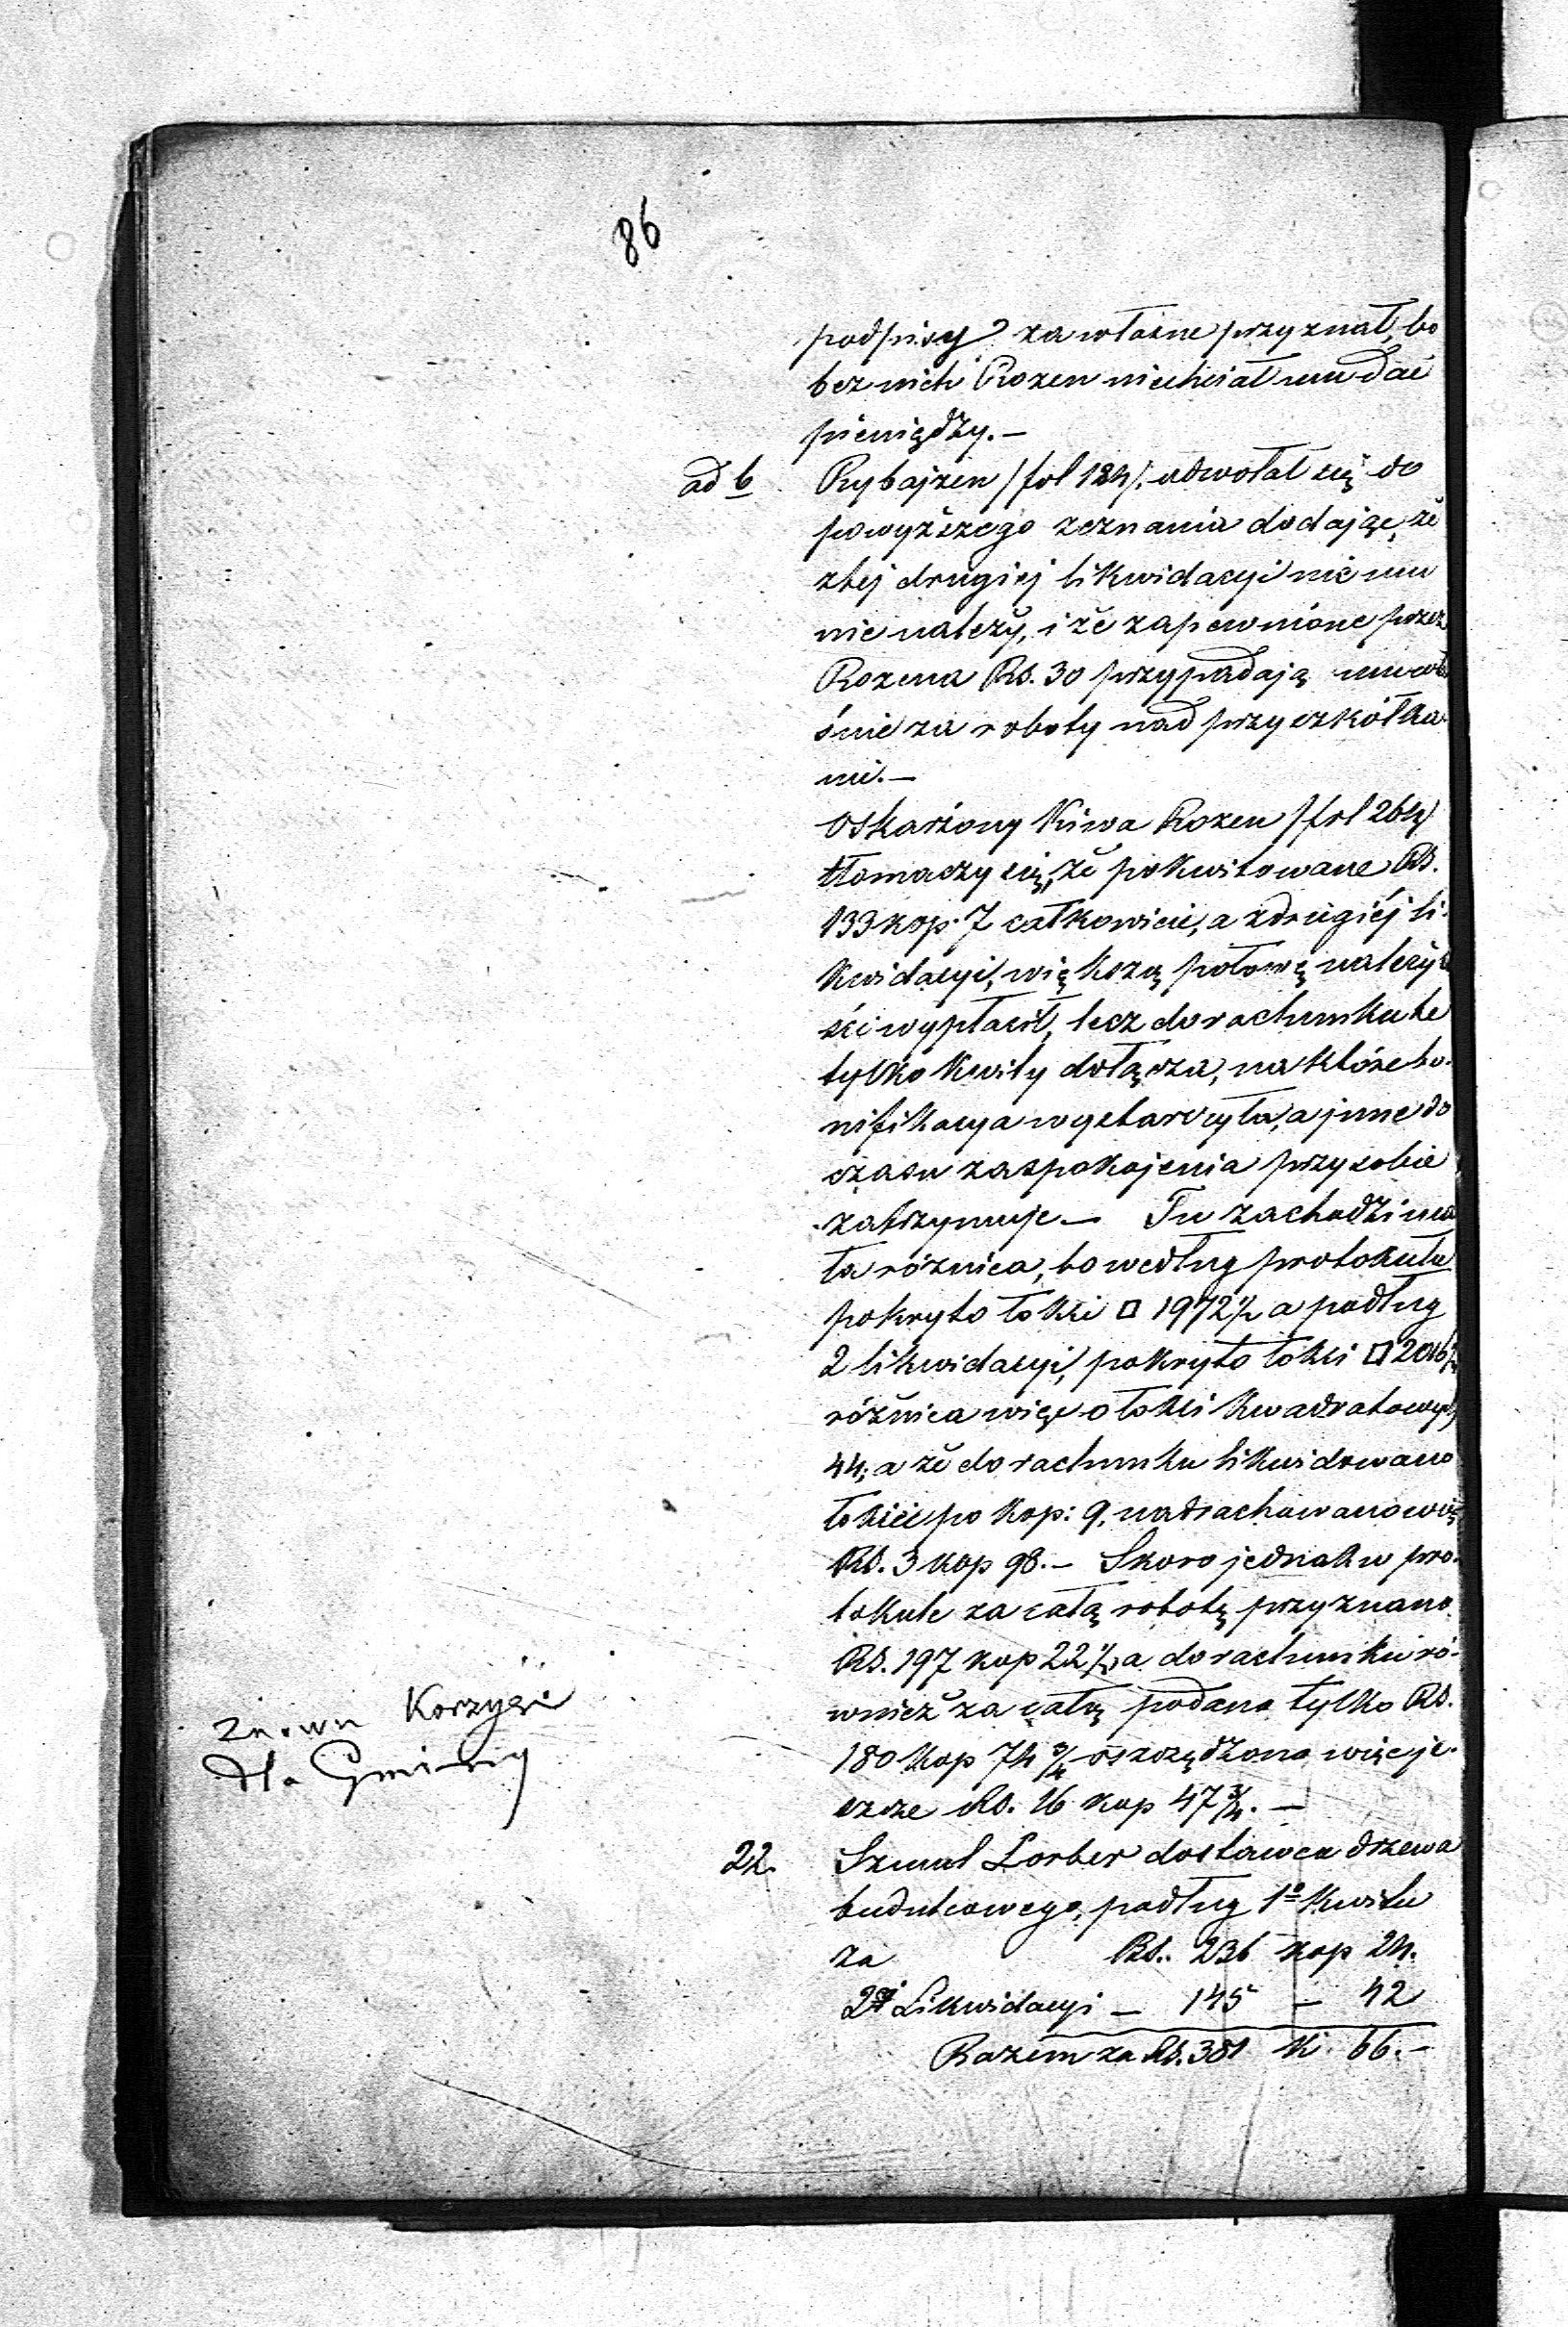 86
podpisy za własne przyznał, bo
bez nich Rozen niechciał mu dać
pieniędzy.—
ad b Rybajzen /fol 124/, odwołał się do
powyższego zeznania dodając, że
z tej drugiej likwidacyi nic mu
nie należy, i że zapewnione przez
Rozena Rs. 30 przypadają mu wła
śnie za roboty nad przyczółka
mi.—
Oskarżony Kiwa Rozen /fol 264/
tłomaczy się, że pokwitowane Rs.
133 kop. 7 całkowicie, a z drugiéj li-
kwidacyi, większą połowę należyto
ści wypłacił, lecz do rachunku te
tylko kwity dołącza, na które bo-
nifikacya wystarczyła, a inne do
czasu zaspokojenia przy sobie
zatrzymuje.— Tu zachodzi ma
ła różnica, bo według protokułu
pokryto łokci □ 1972½ a podług
2 likwidacyi, pokryto łokci □ 2016¾
różnica więc o łokci kwadratowych
44; a że do rachunku likwidowano
łokieć po kop: 9, nadrachowano więc
Rs. 3 kop 98.— Skoro jednak w pro-
tokule za całą robotę przyznano
Rs. 197 kop 22½ a do rachunku ró-
wnież za całą podano tylko Rs.
180 kop 74¾ oszczędzono więc je-
szcze Rs. 16 kop 47¾.—
znowu Korzyści
dla Gminy
22. Szmul Lorber dostawca drzewa
budulcowego, podług 1º Kwitu
za Rs. 236 kop 24.
2éj Likwidacyi — 145 — 42
Razem za Rs. 381 k. 66.—